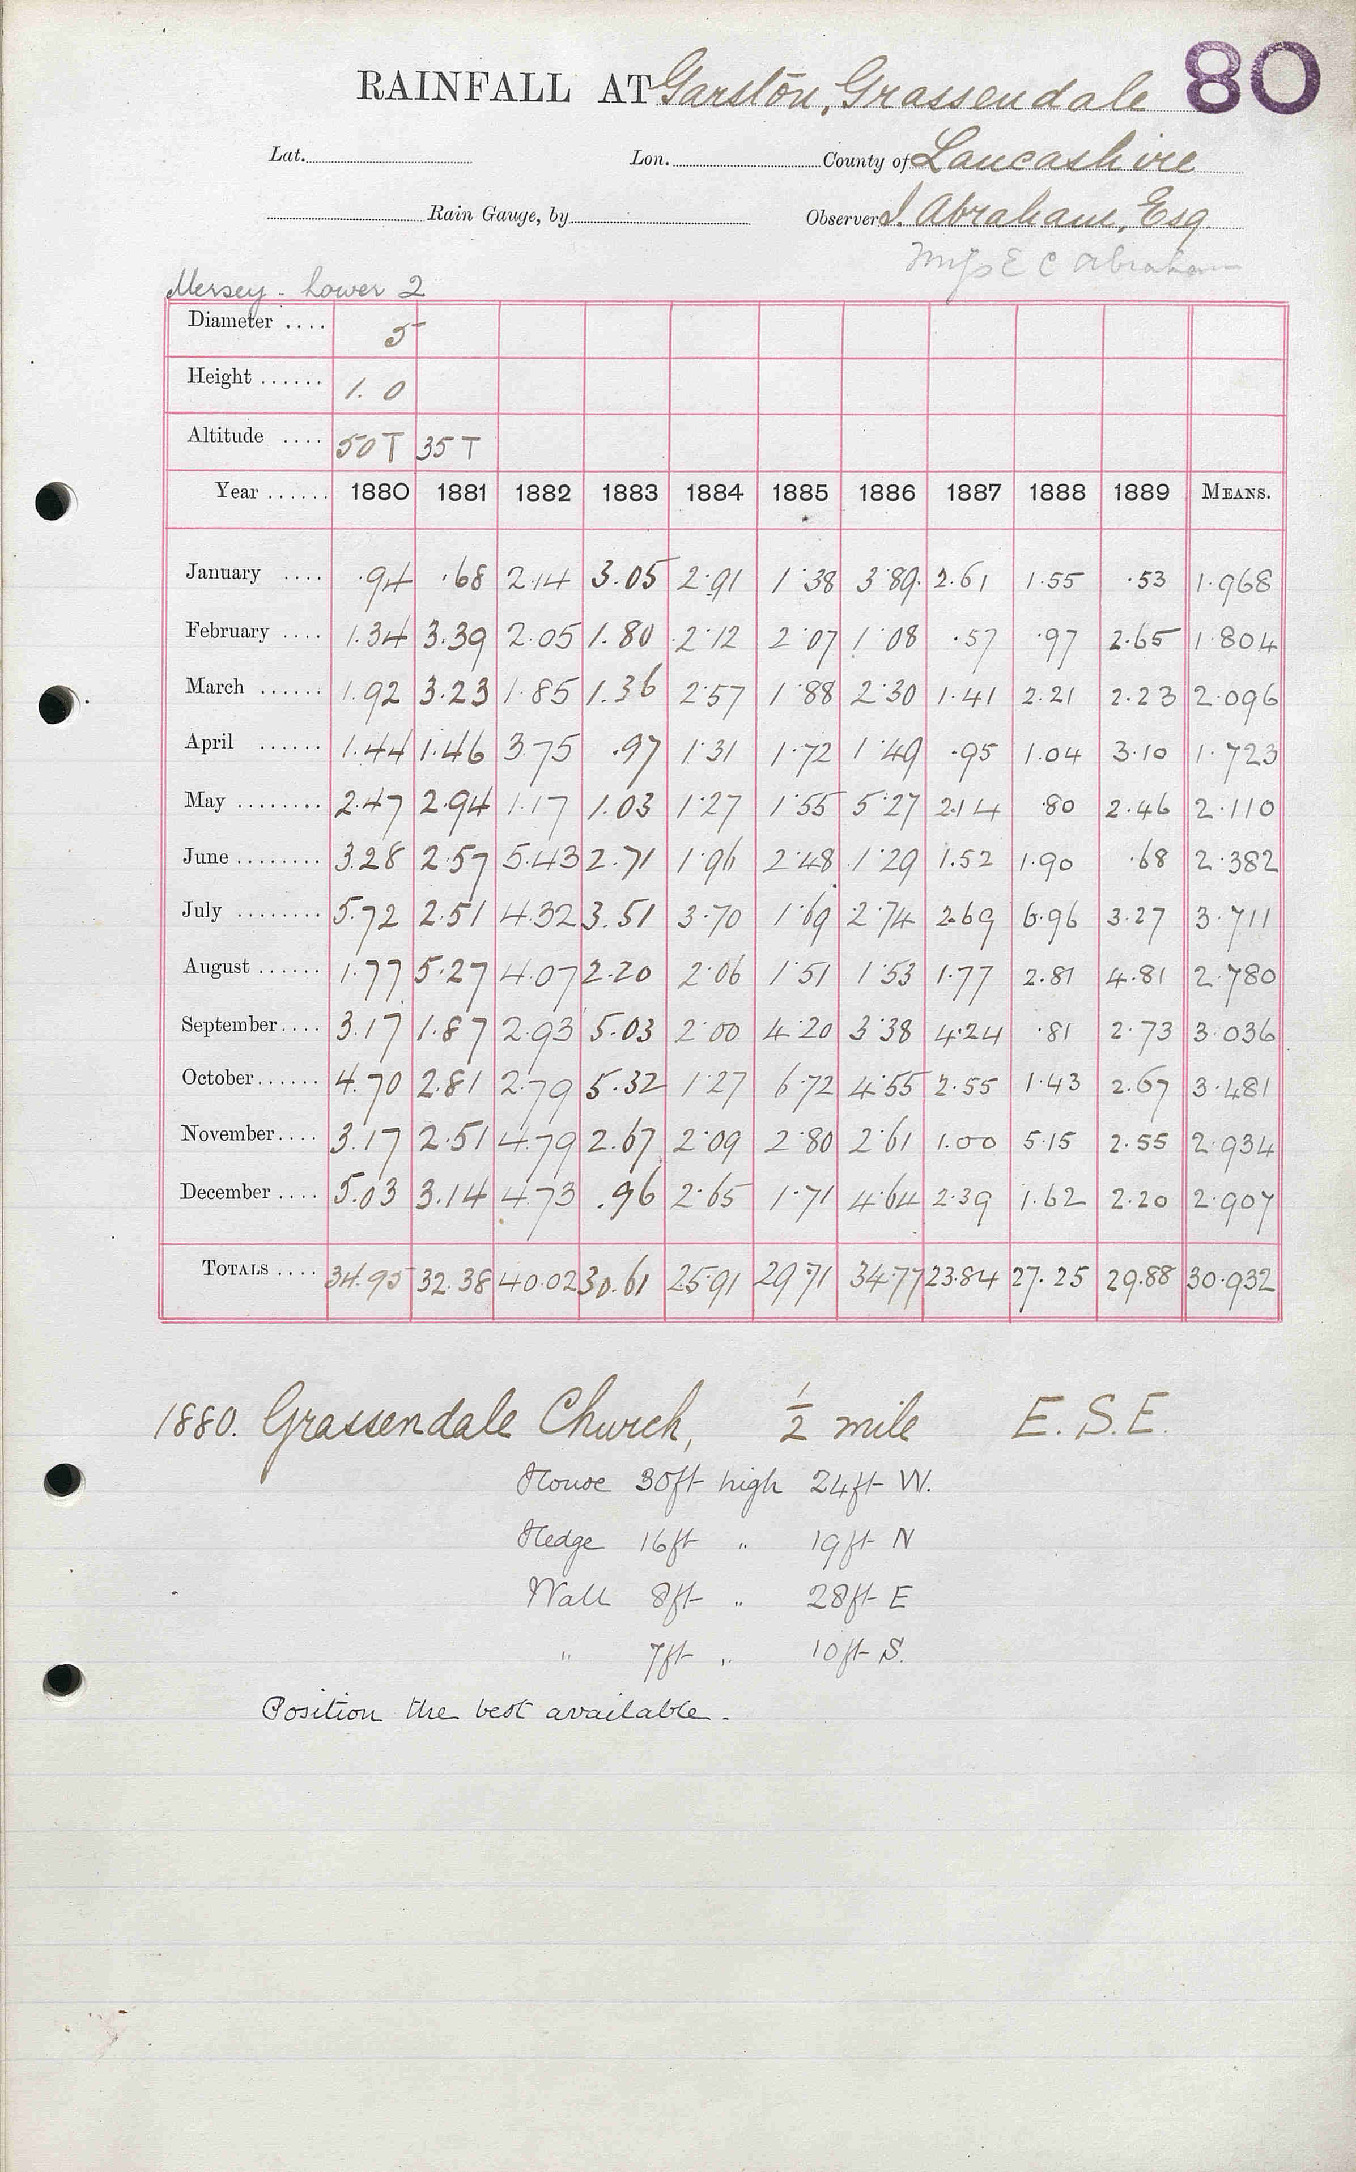 RAINFALL AT Garston, Grassendale 80
Lat. Lon. County of Lancashire
Rain Gauge, by Observer I. Abraham, Esq.
Miss E C Abraham
Mersey - Lower 2
Diameter .... 5
Height ...... 1. 0
Altitude .... 50 T 35 T
Year ...... 1880 1881 1882 1883 1884 1885 1886 1887 1888 1889 MEANS.
January .... .94 .68 2.14 3.05 2.91 1.38 3.89 2.61 1.55 .53 1.968
February .... 1.34 3.39 2.05 1.80 2.12 2.07 1.08 .57 .97 2.65 1.804
March ...... 1.92 3.23 1.85 1.36 2.57 1.88 2.30 1.41 2.21 2.23 2.096
April ...... 1.44 1.46 3.75 .97 1.31 1.72 1.49 .95 1.04 3.10 1.723
May ........ 2.47 2.94 1.17 1.03 1.27 1.55 5.27 2.14 .80 2.46 2.110
June ........ 3.28 2.57 5.43 2.71 1.96 2.48 1.29 1.52 1.90 .68 2.382
July ........ 5.72 2.51 4.32 3.51 3.70 1.69 2.74 2.69 6.96 3.27 3.711
August ...... 1.77 5.27 4.07 2.20 2.06 1.51 1.53 1.77 2.81 4.81 2.780
September.... 3.17 1.87 2.93 5.03 2.00 4.20 3.38 4.24 .81 2.73 3.036
October...... 4.70 2.81 2.79 5.32 1.27 6.72 4.55 2.55 1.43 2.67 3.481
November.... 3.17 2.51 4.79 2.67 2.09 2.80 2.61 1.00 5.15 2.55 2.934
December .... 5.03 3.14 4.73 .96 2.65 1.71 4.64 2.39 1.62 2.20 2.907
TOTALS .... 34.95 32.38 40.02 30.61 25.91 29.71 34.77 23.84 27.25 29.88 30.932
1880. Grassendale Church, ½ mile E. S. E.
House 30ft high 24ft W.
Hedge 16ft " 19ft N
Wall 8ft " 28ft E
" 7ft " 10ft S.
Position the best available.